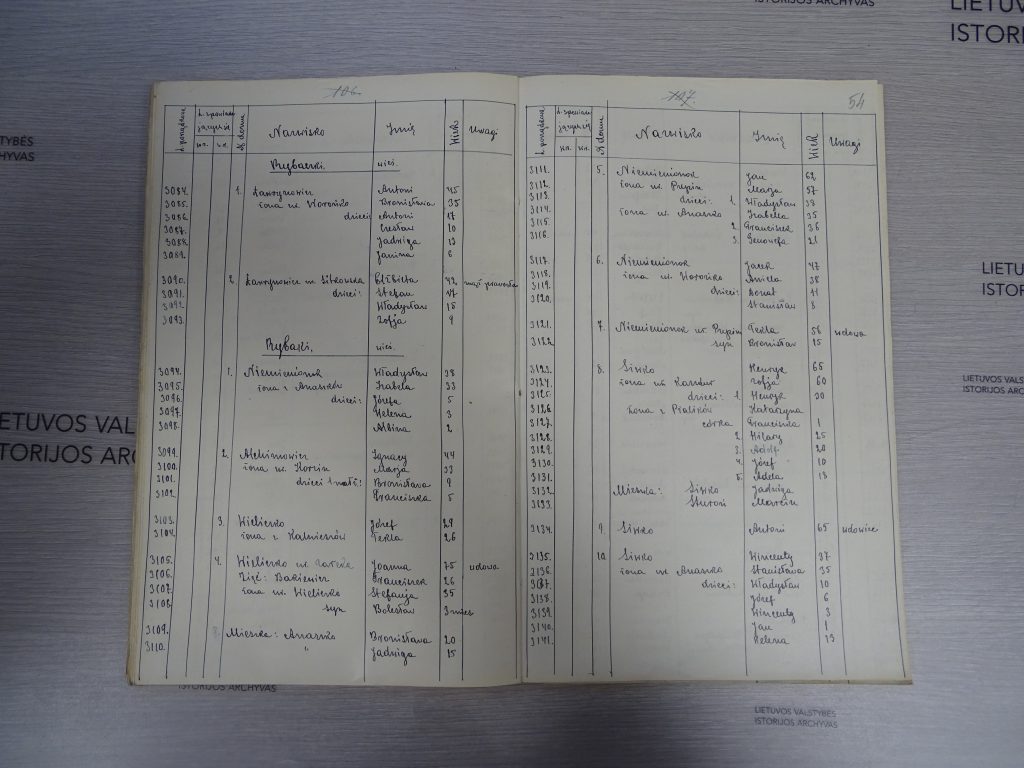 LIETUVOS VALSTYBĖS
ISTORIJOS ARCHYVAS
106
L. porządkowa
№ domu
Nazwisko
Imię
Wiek
Uwagi
Rybaczki. wieś.
3084. 1. Ławrynowicz Antoni 45
3085. żona ur. Woronko Bronisława 35
3086. dzieci Antoni 17
3087. Czesław 10
3088. Jadwiga 13
3089. Janina 6
3090. 2. Ławrynowicz Elżbieta 42
3091. dzieci: Stefan 17
3092. Władysław 15
3093. Zofja 9
Rybaki. wieś.
3094. 1. Niemienionok Władysław 38
3095. żona z Anaszków Izabela 33
3096. dzieci: Józefa 5
3097. Helena 3
3098. Albina 2
3099. 2. Alchimowicz Ignacy 44
3100. żona ur. Marja 33
3101. dzieci Bronisława 9
3102. Franciszka 5
3103. 3. Wieliczko Józef 29
3104. żona z Tekla 26
3105. 4. Wieliczko ur. Joanna 75 wdowa
3106. Zięć: Bakiewicz Franciszek 26
3107. żona ur. Wieliczko Stefanja 35
3108. syn Bolesław 3 mies
3109. Mieszka: Anaszko Bronisława 20
3110. " Jadwiga 15
107.
54
L. porządkowa
№ domu
Nazwisko
Imię
Wiek
Uwagi
3111. 5. Niemienionok Jan 62
3112. żona ur. Marja 57
3113. dzieci: 1. Władysław 38
3114. żona ur. Anaszko Izabella 35
3115. 2. Franciszek 36
3116. 3. Genowefa 21
3117. 6. Niemienionok Jacek 47
3118. żona ur. Woronko Aniela 38
3119. dzieci: Donat 11
3120. Stanisław 8
3121. 7. Niemienionok ur. Tekla 56 wdowa
3122. syn Bronisław 15
3123. 8. Siwko Henryk 65
3124. żona ur. Zofja 60
3125. dzieci: 1. Henryk 30
3126. żona z Katarzyna
3127. córka Franciszka 1
3128. 2. Hilary 25
3129. 3. Adolf 20
3130. 4. Józef 10
3131. 5. Adela 18
3132. Mieszka: Siwko Jadwiga
3133. Marcin
3134. 9. Siwko Antoni 65 wdowiec
3135. 10. Siwko Wincenty 37
3136. żona ur. Anaszko Stanisława 35
3137. dzieci: Władysław 10
3138. Józef 6
3139. Wincenty 3
3140. Jan 1
3141. Helena 15
LIETUVOS VALSTYBĖS
ISTORIJOS ARCHYVAS